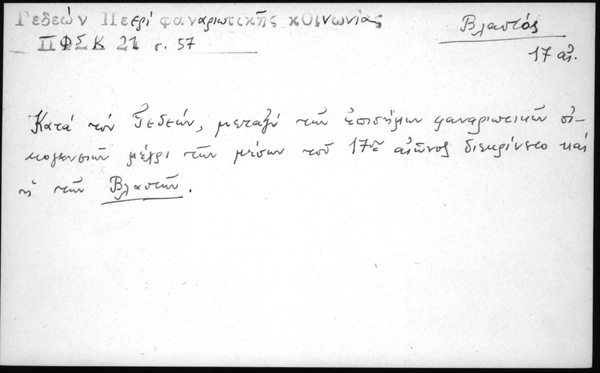 Γεδεών Περί φαναριωτικῆς κοινωνίας
ΠΦΣΚ 21 σ. 57
Βλαστός
17 αἰ.
Κατά τόν Γεδεών, μεταξύ τῶν ἐπισήμων φαναριωτικῶν οἰ-
κογενειῶν μέχρι τῶν μέσων τοῦ 17ου αἰῶνος διεκρίνετο καί
ἡ τῶν Βλαστῶν.